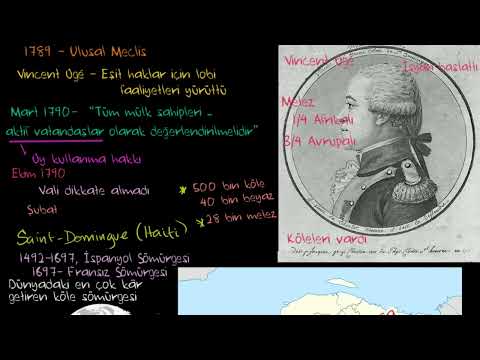 1789 - Ulusal Meclis
Vincent Ogé - Eşit haklar için lobi
faaliyetleri yürüttü
Mart 1790- "Tüm mülk sahipleri -
aktif vatandaşlar olarak değerlendirilmelidir"
Oy kullanma hakkı
Ekim 1790
Vali dikkate almadı
Şubat
* 500 bin köle
40 bin beyaz
* 28 bin melez
Saint-Domingue (Haiti)
1492-1697, İspanyol Sömürgesi
1697- Fransız Sömürgesi
Dünyadaki en çok kâr
getiren köle sömürgesi
Vincent Ogé
İsyan başlattı
Melez
1/4 Afrikalı
3/4 Avrupalı
Köleleri vardı